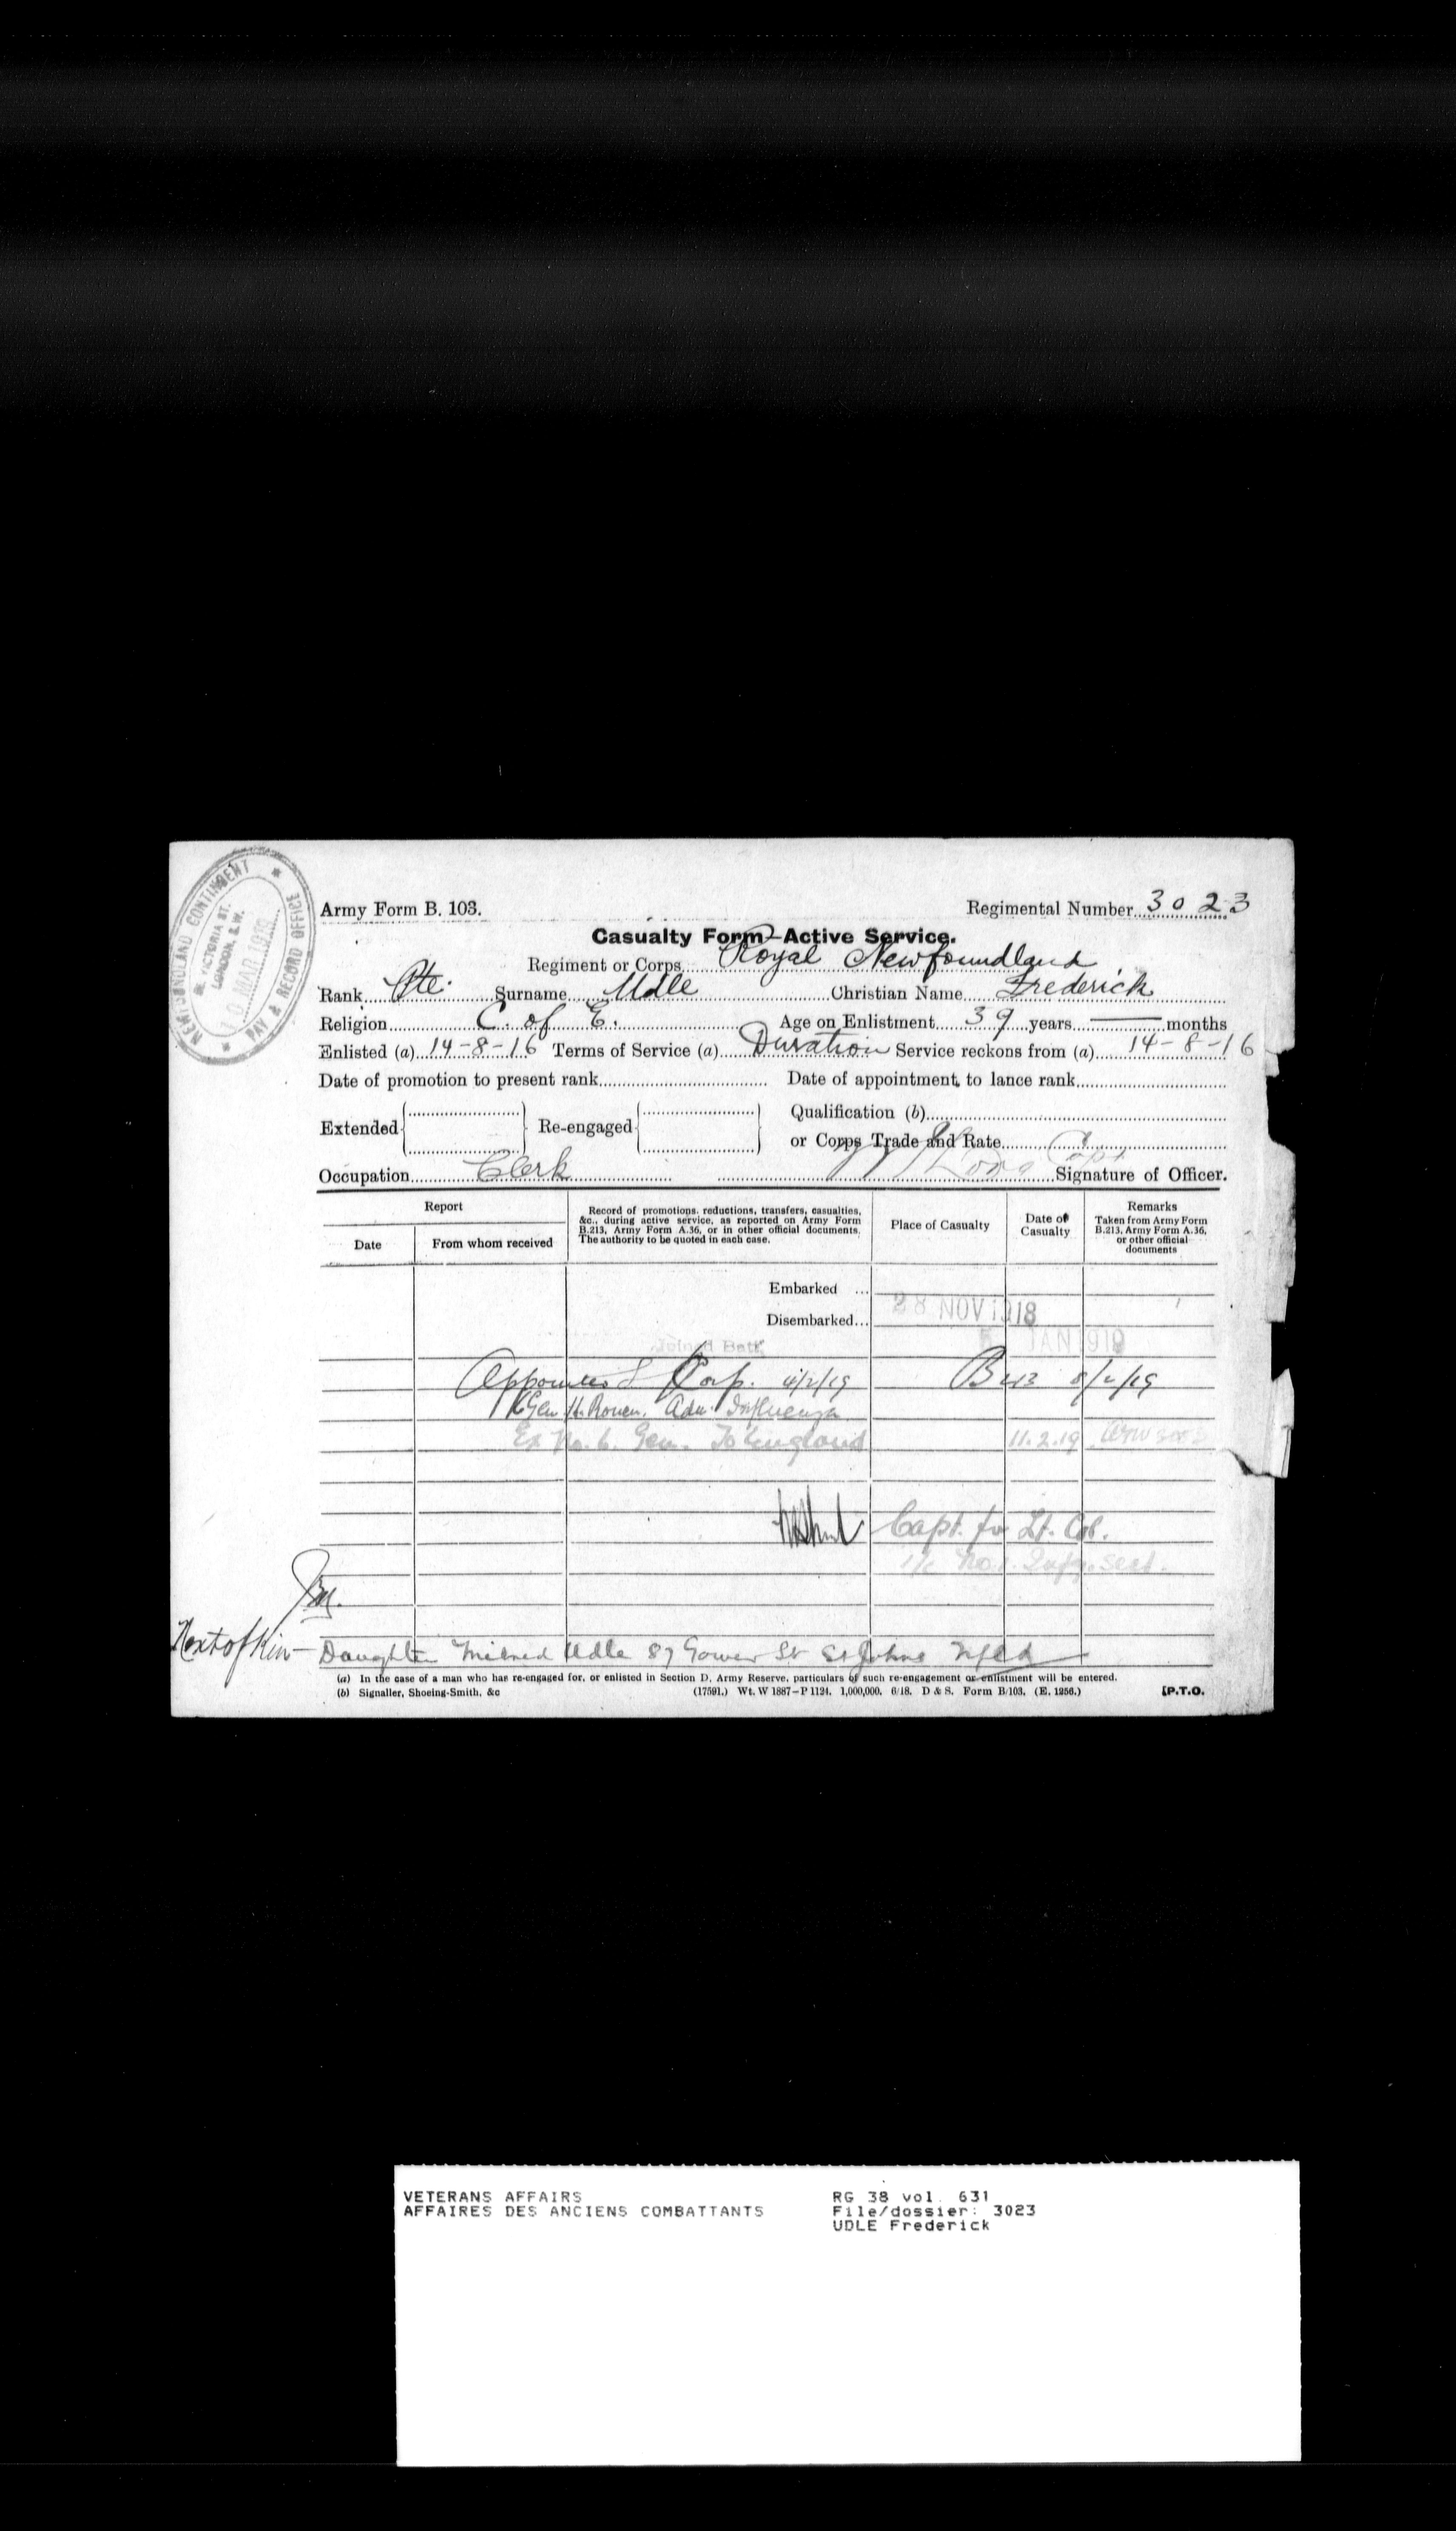 NEWFOUNDLAND CONTINGENT
PAY & RECORD OFFICE
VICTORIA ST.
LONDON. S.W.
10 MAR 1919
Army Form B. 103.
Regimental Number 3023
Casualty Form—Active Service.
Regiment or Corps Royal Newfoundland
Rank Pte. Surname Udle Christian Name Frederick
Religion C. of E. Age on Enlistment 39 years — months
Enlisted (a) 14-8-16 Terms of Service (a) Duration Service reckons from (a) 14-8-16
Date of promotion to present rank Date of appointment to lance rank
Extended Re-engaged Qualification (b)
or Corps Trade and Rate
Occupation Clerk Capt. Signature of Officer.
Report
Date
From whom received
Record of promotions, reductions, transfers, casualties, &c., during active service, as reported on Army Form B.213, Army Form A.36, or in other official documents. The authority to be quoted in each case.
Place of Casualty
Date of Casualty
Remarks
Taken from Army Form B.213, Army Form A.36, or other official documents
Embarked ...
Disembarked... 28 NOV 1918
Joined Batt 5 JAN 1919
Appointed L Corp. 4/2/19 B213 8/2/19
Gen. H. Rouen. Adm. Influenza
Ex No. 6. Gen. To England 11.2.19
Capt. for Lt. Col.
i/c No. Infy. Sect.
Next of Kin— Daughter Mildred Udle 87 Gower St St Johns Nfld
(a) In the case of a man who has re-engaged for, or enlisted in Section D, Army Reserve, particulars of such re-engagement or enlistment will be entered.
(b) Signaller, Shoeing-Smith, &c (17591.) Wt. W 1887—P 1124. 1,000,000. 6/18. D & S. Form B/103. (E. 1256.) [P.T.O.
VETERANS AFFAIRS RG 38 vol. 631
AFFAIRES DES ANCIENS COMBATTANTS File/dossier: 3023
UDLE Frederick